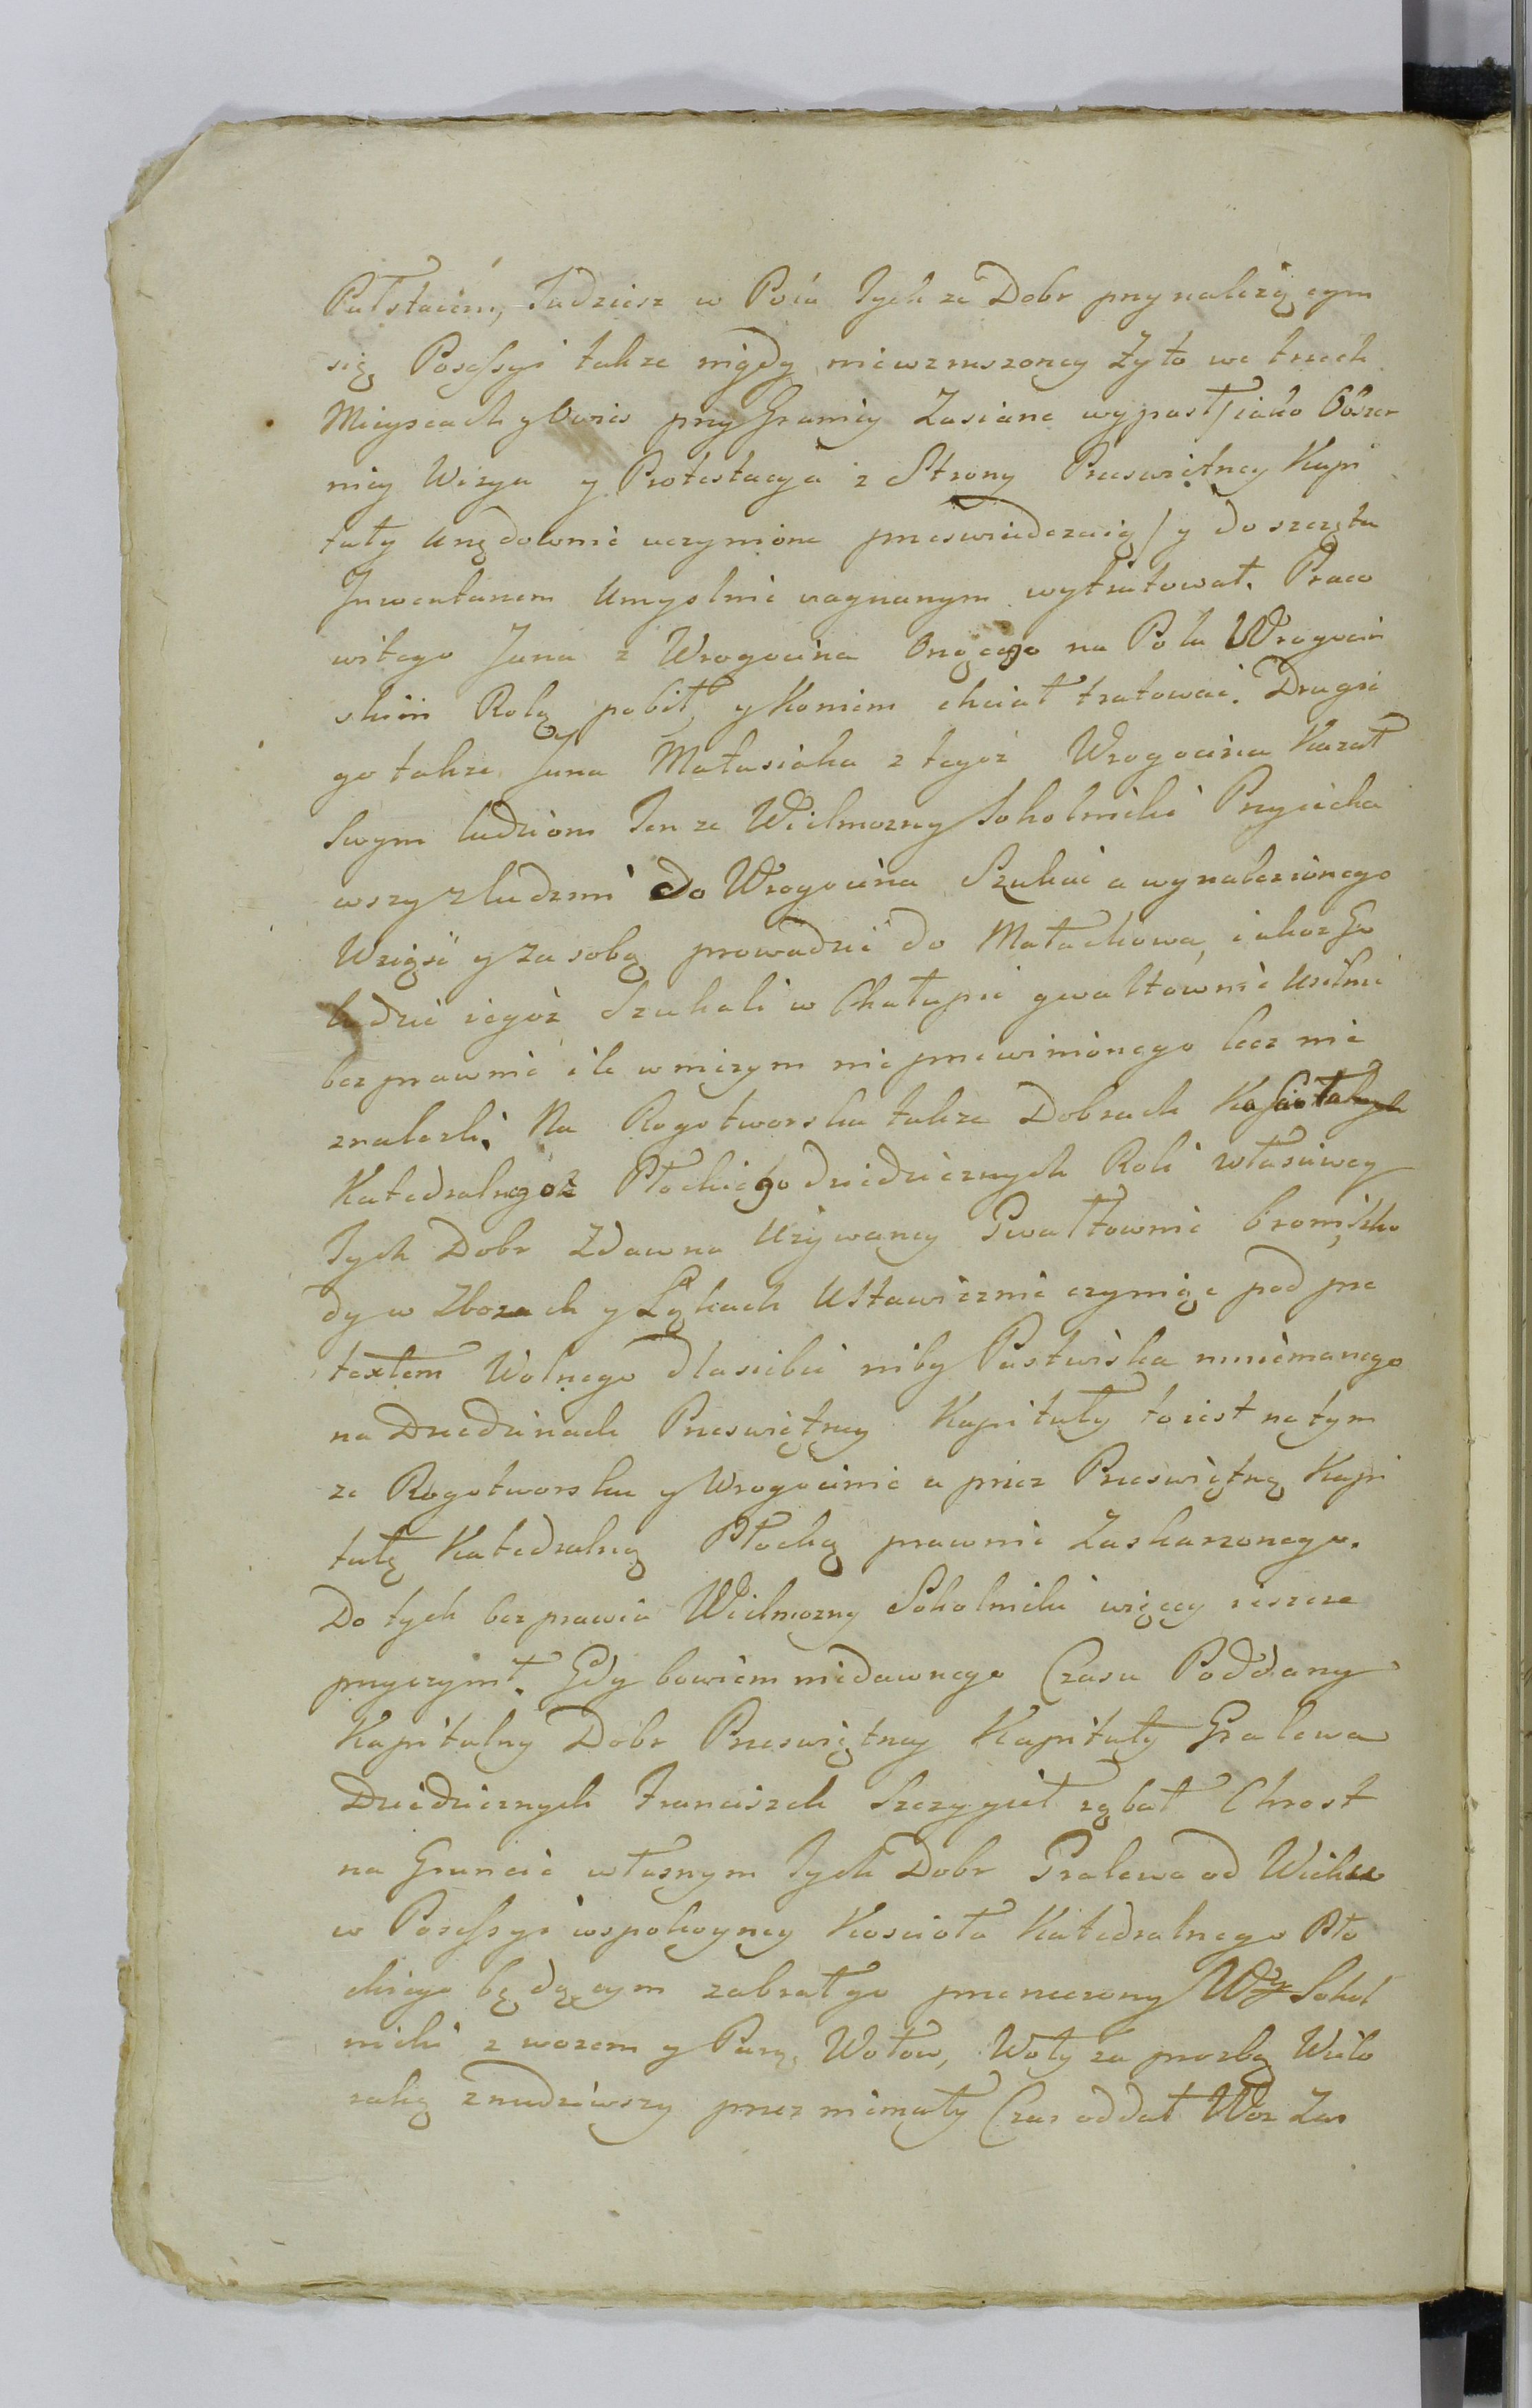 Tudziesz w Polu Tychze Dobr przynależącym
się Possessyi takze nigdy niewzruszoney Zyto we trzech
Mieyscach y Owies przy Granicy Zasiane wypasł/iako Obszer
niey Wizya y Protestacya z Strony Przeswiętney Kapi
tuły Urzędownie uczynione przeswiadczaią/y do szczętu
Inwentarzem Umyslnie nagnanym wytratował. Praco
witego Jana z Wrogocina Orzącego na Polu Wrogociń
skim Rolą pobił, y Koniem chciał tratować. Drugie
go takze Jana Matusiaka z tegoż Wrogocina Kazał
Swym ludziom Tenze Wielmozny Sokolnicki Przyiecha
wszy z ludzmi do Wrogocina Szukać a wynalezionego
Wziąść y za sobą prowadzić do Małachowa, iakoż Go
ludzie iegoż Szukali w Chałupie gwałtownie Usilnie
bezprawnie ile w niczym nieprzewinionego lecz nie
znalezli. Na Rogotworsku takze Dobrach Kościoła
Katedralnegoż Płockiego dziedzicznych Roli własciwey
Tych Dobr Zdawna Uzywaney Gwałtownie broni, Szko
dy w Zbozach y Łąkach Ustawicznie czyniąc pod pre
textem Wolnego dla siebie niby Pastwiska mniemanego
na Dziedzinach Przeswiętney Kapituły to iest na tym
ze Rogotworsku y Wrogocinie a przez Przeswiętną Kapi
tułę Katedralną Płocką prawnie Zaskarzonego.
Do tych bezprawia Wielmozny Sokolnicki więcey ieszcze
przyczynił. Gdy bowiem niedawnego Czasu Poddany
Kapitulny Dobr Przeswiętney Kapituły Gralewa
Dziedzicznych Franciszek Szczygieł rąbał Chrost
na Gruncie własnym Tych Dobr Gralewa od Wieku
w Possessyi wspokoyney Koscioła Katedralnego Pło
ckiego będącym zabrał go przerzeczony Wy Sokol
nicki z wozem y Parą Wołow, Woły za prozbą Wielo
raką znudziwszy przez niemały Czas oddał Woz Zas